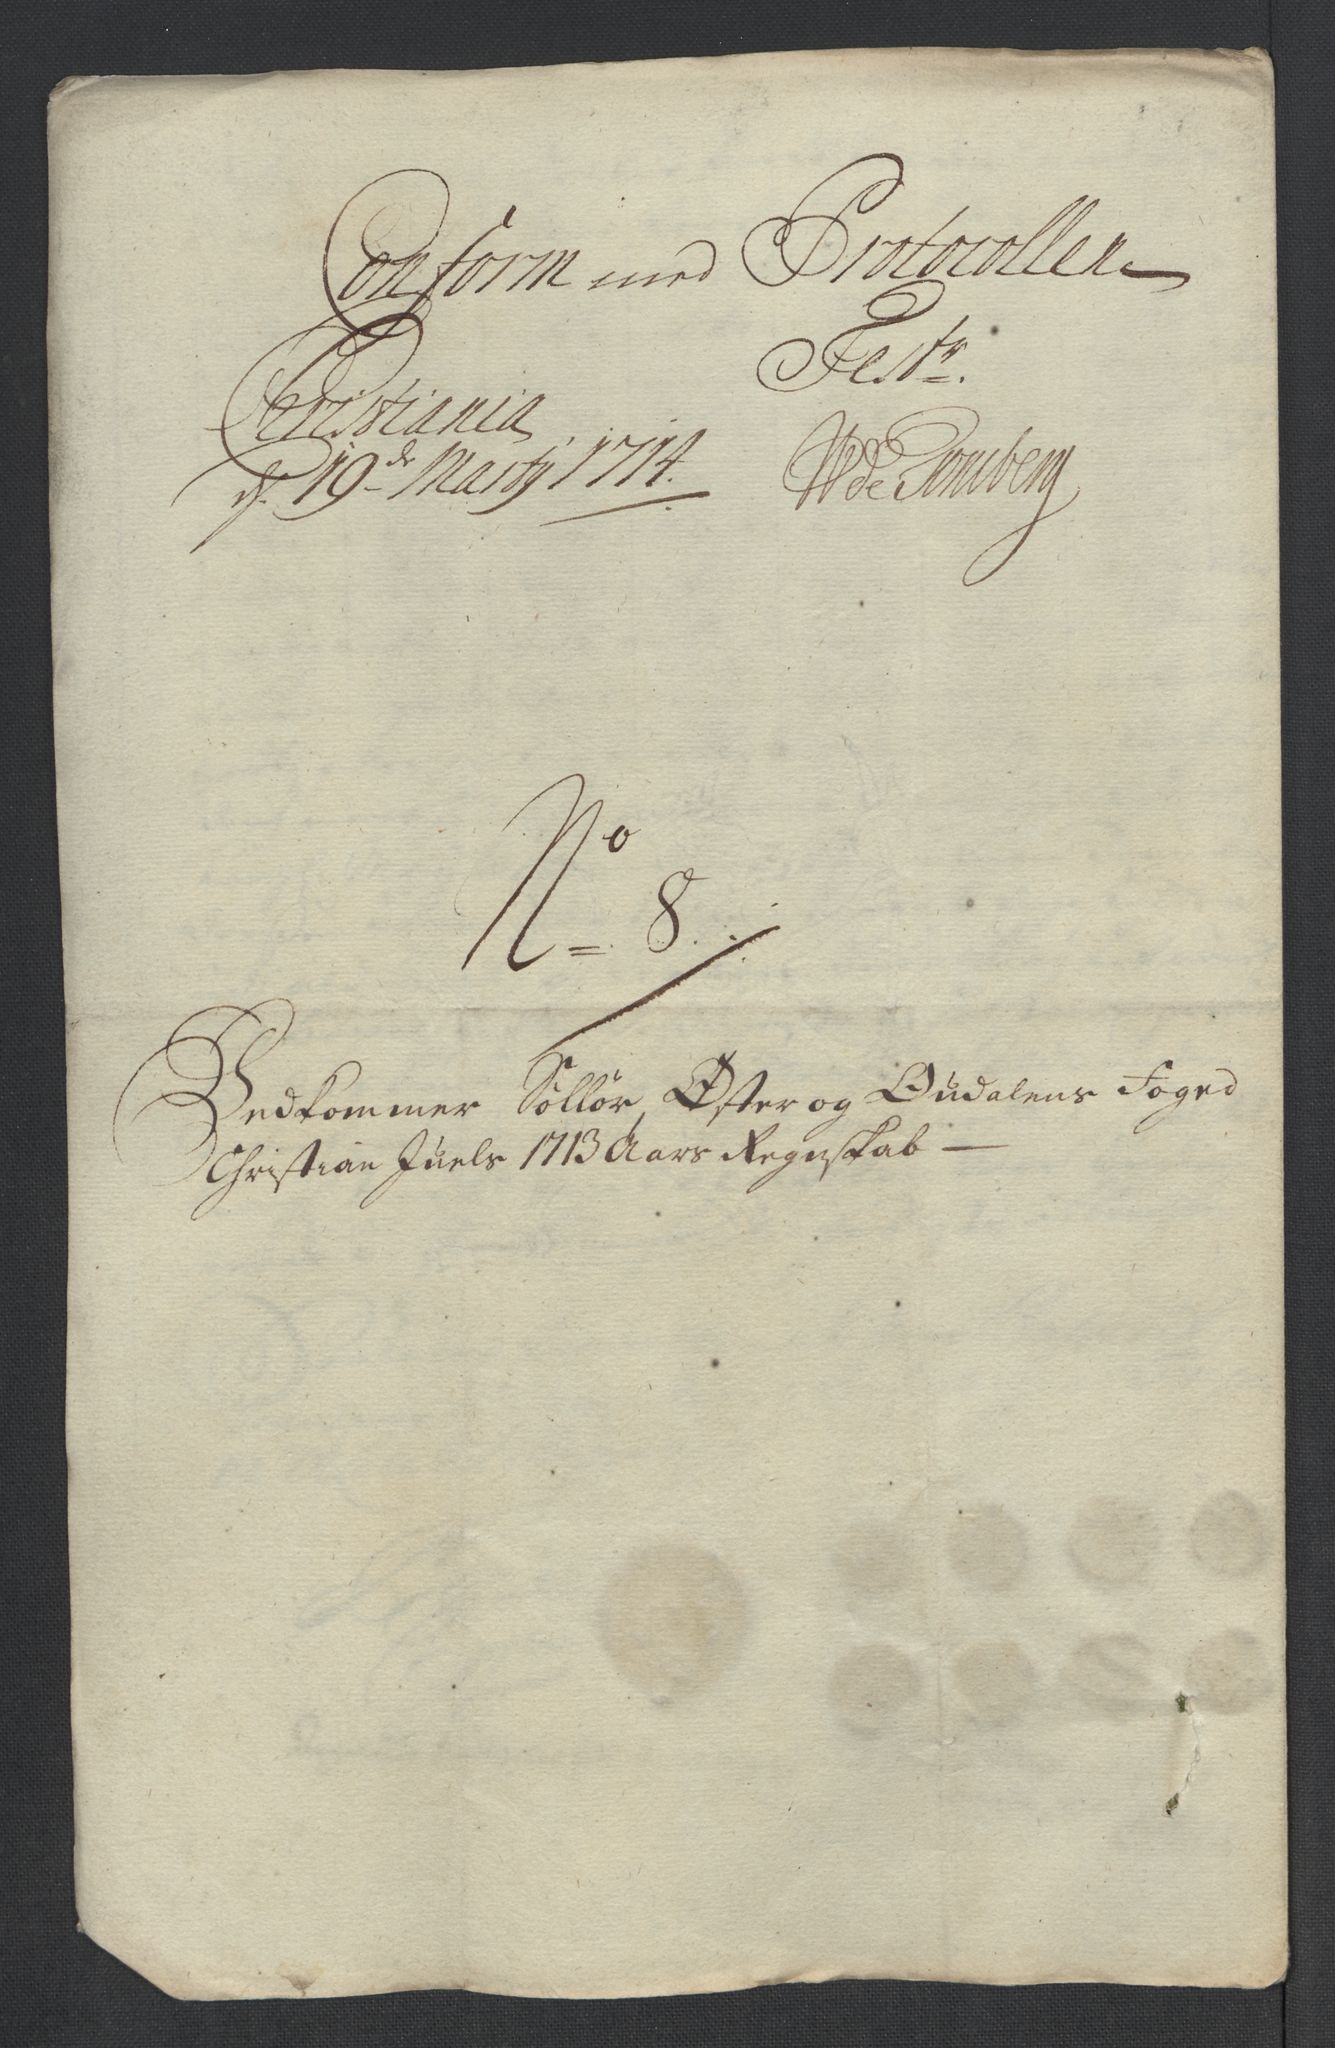 Conform med Protocollen
Test:
Christiania
d. 19de Martij 1714.
WdeTonsberg
No 8.
Vedkommer Sollør, Øster og Oudalens Foged
Christian Juels 1713 Aars Regnskab —